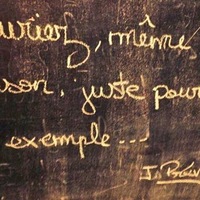 uriez, même
ison, juste pour
exemple...
J. Prév